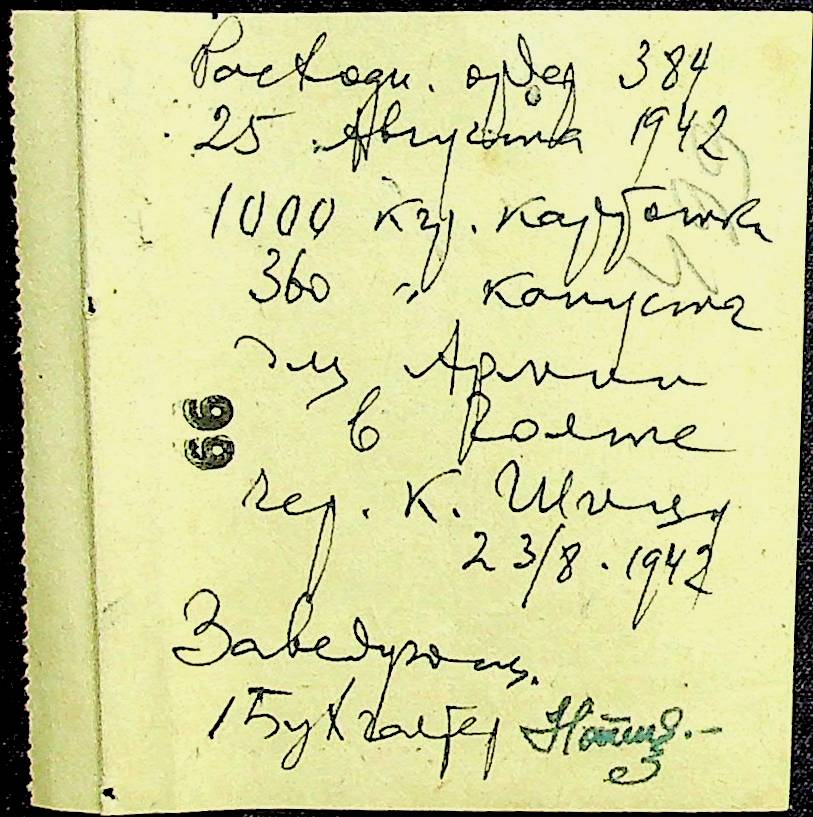 Расходн. ордер 384
25 Августа 1942
1000 кгр. картошки
360 " капуста
для Армии
в
66
чер. К.
23/8. 1942
Заведующ.
Бухгалтер